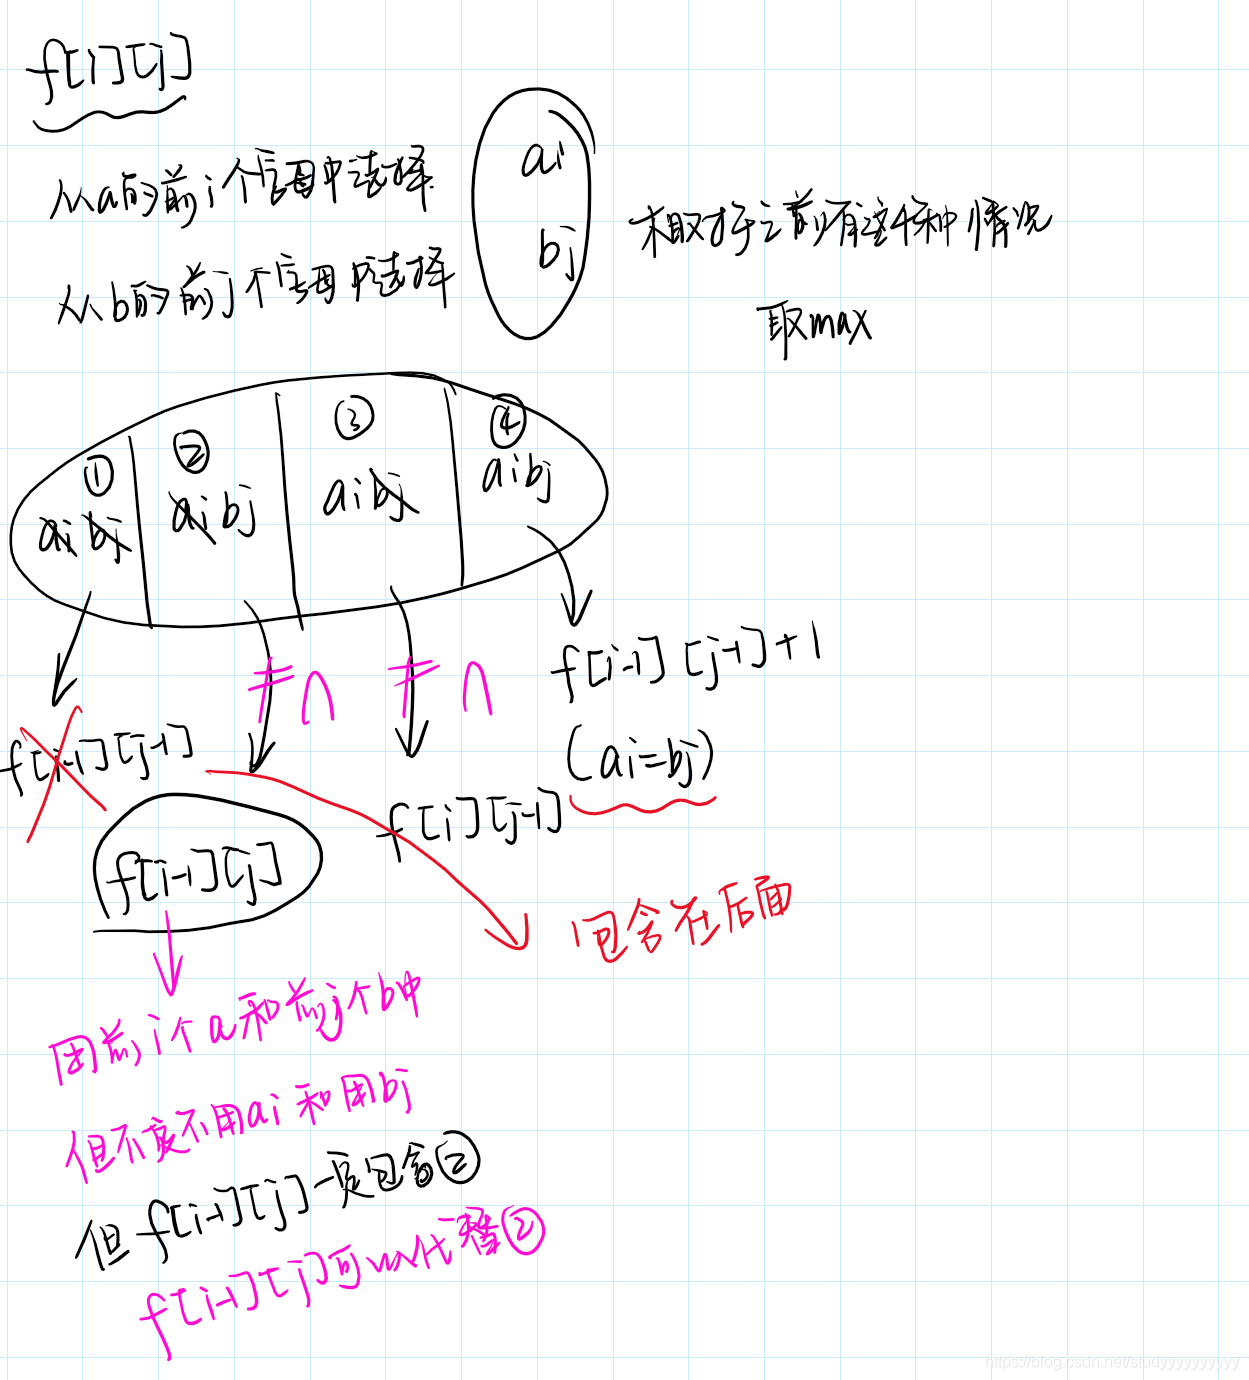 f[i][j]
从a的前i个字母中选择
从b的前j个字母中选择
ai
bj
相对于之前只有这4种情况
取max
① ② ③ ④
ai bj ai bj ai bj ai bj
≠ ∩ ≠ ∩
f[i-1][j-1]+1
(ai=bj)
f[i-1][j-1]
f[i-1][j]
f[i][j-1]
包含在后面
用前i个a和前j个b中
但不用ai和用bj
但f[i-1][j]一定包含②
f[i-1][j]可以代替②
https://blog.csdn.net/studyyyyyyyyyy